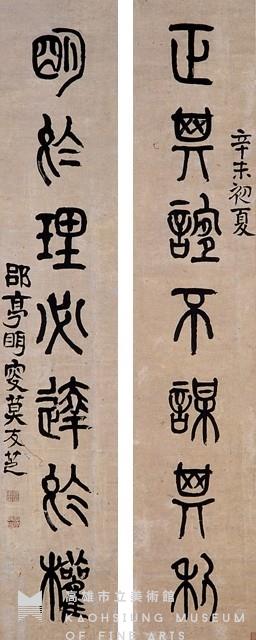 辛未初夏
正其誼不謀其利
明於理必達於權
郘亭眲叟莫友芝
高雄市立美術館
KAOHSIUNG MUSEUM
OF FINE ARTS